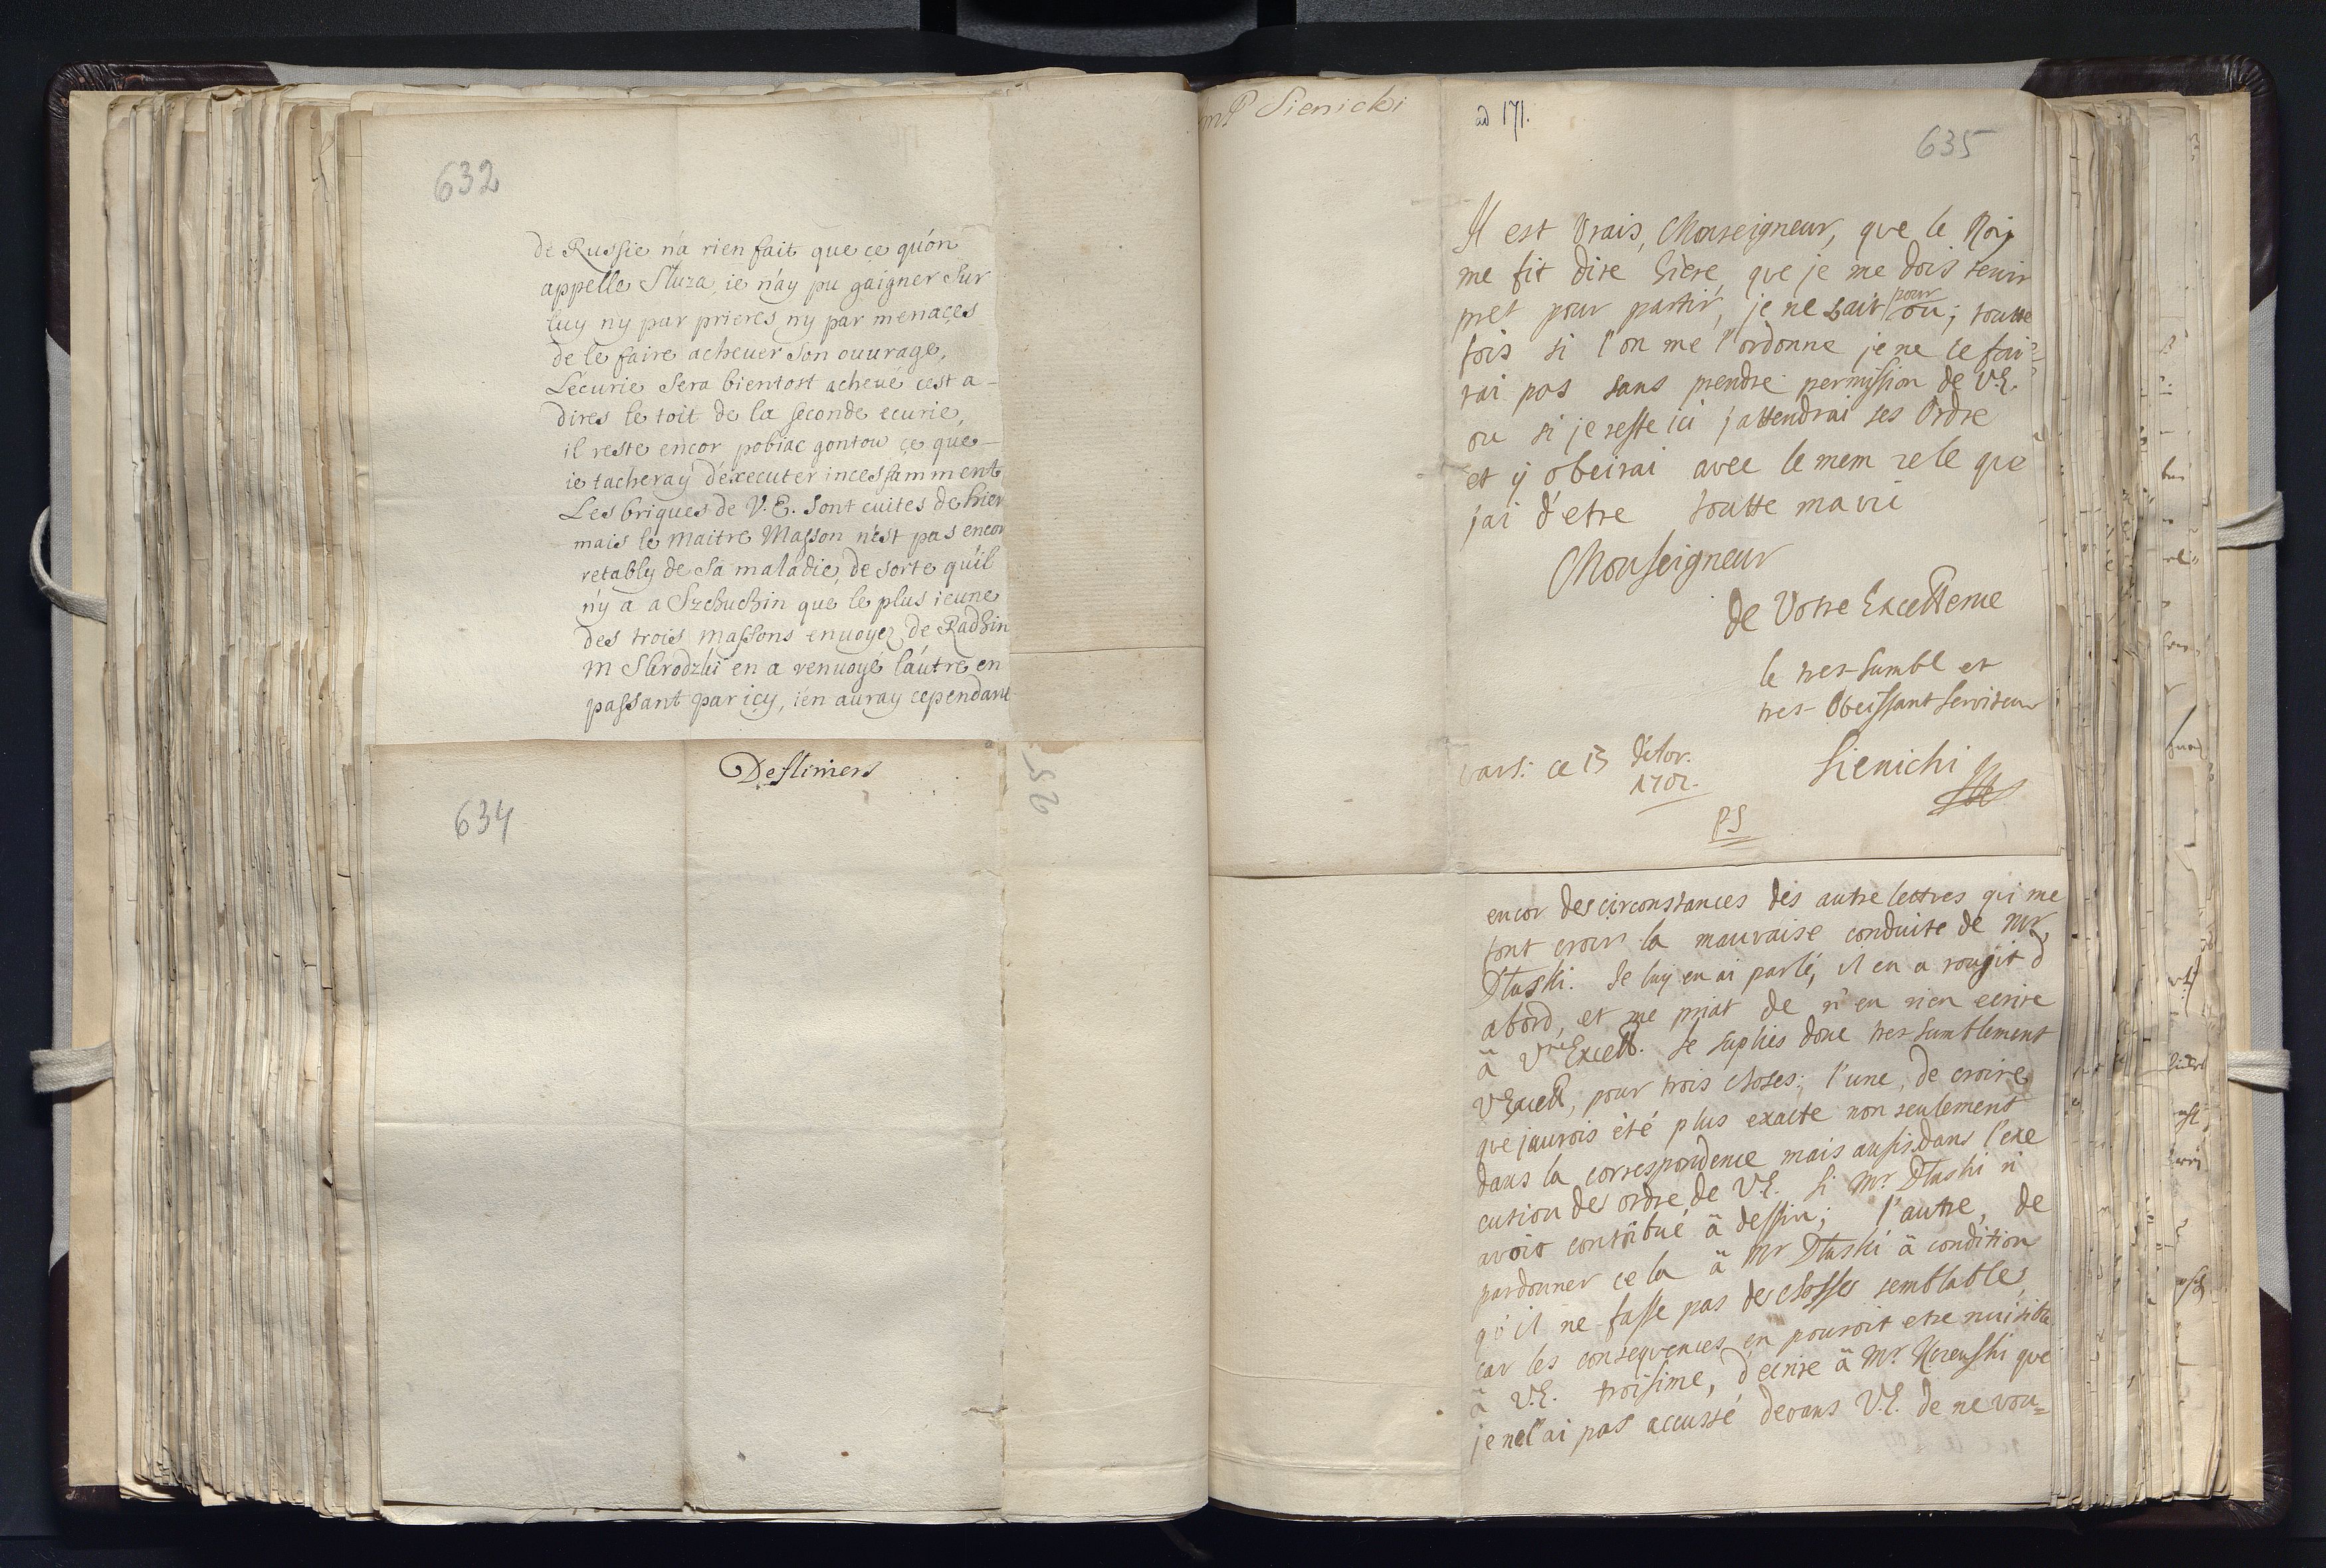 632
de Russie n'a rien fait que ce qu'on
appelle Sluza, ie n'ay pu gaigner sur
luy ny par prieres ny par menaces
de le faire acheuer son ouurage,
L'ecurie sera bientost acheué cest a-
dires le toit de la seconde ecurie,
il reste encor pobiac gontow ce que
ie tacheray d'exeçuter incessamment
Les briques de V. E. sont cuites de hier
mais le maitre Masson n'est pas encor
retably de sa maladie, de sorte qu'il
n'y a a Szchuchin que le plus ieune
des trois massons enuoyez de Radzin
passant par icy, i'en auray cependant
634
Desliniers
mP Sienicki
ad 171.
635
Il est vrais, Monseigneur, que le Roi
me fit dire hiere, que je me dois tenir
pret pour partir, je ne sait pour ou; toutte
fois si l'on me l'ordonne je ne le fai=
rai pas sans prendre permission de V.E.
ou si je reste ici j'attendrai ses Ordre
et y obeirai avec le mem zele que
j'ai d'etre toutte ma vie
Monseigneur
de Votre Excellence
le tres-humbl et
tres-Obeissant serviteur
vars: ce 13
1702.
Sienicki
PS
encor des circonstances des autre lettres qui me
font croir la mauvaise conduite de Mr
Dluski. Je luy en ai parlé, il en a rougit d
abord, et me priat de n'en rien ecrire
à Vtre Excell. Je suplies donc tres humblement
V Excell, pour trois choses: l'une, de croire
que j'aurois été plus exacte non seulement
dans la correspondence mais aussi dans l'exe
cution des ordre de V.E. si Mr. Dluski n'
avoit contribué à dessin; l'autre, de
pardonner cela à Mr Dluski à condition
qu'il ne fasse pas des chosses semblables
car les consequences en pouroit etre nuisible
à V.E. troisime, d'ecrire à Mr. que
je ne l'ai pas accussé devans V.E. de ne vou=